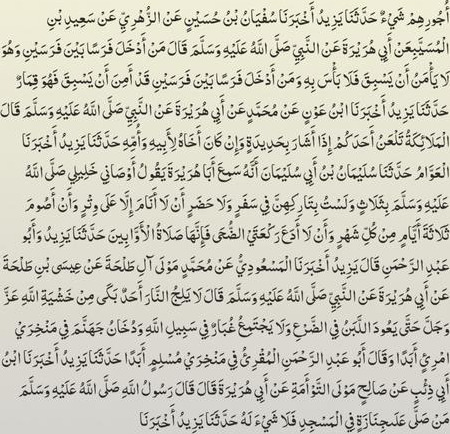 أُجُورِهِمْ شَيْءٌ حَدَّثَنَا يَزِيدُ أَخْبَرَنَا سُفْيَانُ بْنُ حُسَيْنٍ عَنِ الزُّهْرِيِّ عَنْ سَعِيدِ بْنِ
الْمُسَيِّبِ عَنْ أَبِي هُرَيْرَةَ عَنِ النَّبِيِّ صَلَّى اللَّهُ عَلَيْهِ وَسَلَّمَ قَالَ مَنْ أَدْخَلَ فَرَسًا بَيْنَ فَرَسَيْنِ وَهُوَ
لَا يَأْمَنُ أَنْ يَسْبِقَ فَلَا بَأْسَ بِهِ وَمَنْ أَدْخَلَ فَرَسًا بَيْنَ فَرَسَيْنِ قَدْ أَمِنَ أَنْ يَسْبِقَ فَهُوَ قِمَارٌ
حَدَّثَنَا يَزِيدُ أَخْبَرَنَا ابْنُ عَوْنٍ عَنْ مُحَمَّدٍ عَنْ أَبِي هُرَيْرَةَ عَنِ النَّبِيِّ صَلَّى اللَّهُ عَلَيْهِ وَسَلَّمَ قَالَ
الْمَلَائِكَةُ تَلْعَنُ أَحَدَكُمْ إِذَا أَشَارَ بِحَدِيدَةٍ وَإِنْ كَانَ أَخَاهُ لِأَبِيهِ وَأُمِّهِ حَدَّثَنَا يَزِيدُ أَخْبَرَنَا
الْعَوَّامُ حَدَّثَنَا سُلَيْمَانُ بْنُ أَبِي سُلَيْمَانَ أَنَّهُ سَمِعَ أَبَا هُرَيْرَةَ يَقُولُ أَوْصَانِي خَلِيلِي صَلَّى اللَّهُ
عَلَيْهِ وَسَلَّمَ بِثَلَاثٍ وَلَسْتُ بِتَارِكِهِنَّ فِي سَفَرٍ وَلَا حَضَرٍ أَنْ لَا أَنَامَ إِلَّا عَلَى وِتْرٍ وَأَنْ أَصُومَ
ثَلَاثَةَ أَيَّامٍ مِنْ كُلِّ شَهْرٍ وَأَنْ لَا أَدَعَ رَكْعَتَيِ الضُّحَى فَإِنَّهَا صَلَاةُ الْأَوَّابِينَ حَدَّثَنَا يَزِيدُ وَأَبُو
عَبْدِ الرَّحْمَنِ قَالَ يَزِيدُ أَخْبَرَنَا الْمَسْعُودِيُّ عَنْ مُحَمَّدٍ مَوْلَى آلِ طَلْحَةَ عَنْ عِيسَى بْنِ طَلْحَةَ
عَنْ أَبِي هُرَيْرَةَ عَنِ النَّبِيِّ صَلَّى اللَّهُ عَلَيْهِ وَسَلَّمَ قَالَ لَا يَلِجُ النَّارَ أَحَدٌ بَكَى مِنْ خَشْيَةِ اللَّهِ عَزَّ
وَجَلَّ حَتَّى يَعُودَ اللَّبَنُ فِي الضَّرْعِ وَلَا يَجْتَمِعُ غُبَارٌ فِي سَبِيلِ اللَّهِ وَدُخَانُ جَهَنَّمَ فِي مَنْخِرَيْ
امْرِئٍ أَبَدًا وَقَالَ أَبُو عَبْدِ الرَّحْمَنِ الْمُقْرِئُ فِي مَنْخِرَيْ مُسْلِمٍ أَبَدًا حَدَّثَنَا يَزِيدُ أَخْبَرَنَا ابْنُ
أَبِي ذِئْبٍ عَنْ صَالِحٍ مَوْلَى التَّوْأَمَةِ عَنْ أَبِي هُرَيْرَةَ قَالَ قَالَ رَسُولُ اللَّهِ صَلَّى اللَّهُ عَلَيْهِ وَسَلَّمَ
مَنْ صَلَّى عَلَى جِنَازَةٍ فِي الْمَسْجِدِ فَلَا شَيْءَ لَهُ حَدَّثَنَا يَزِيدُ أَخْبَرَنَا